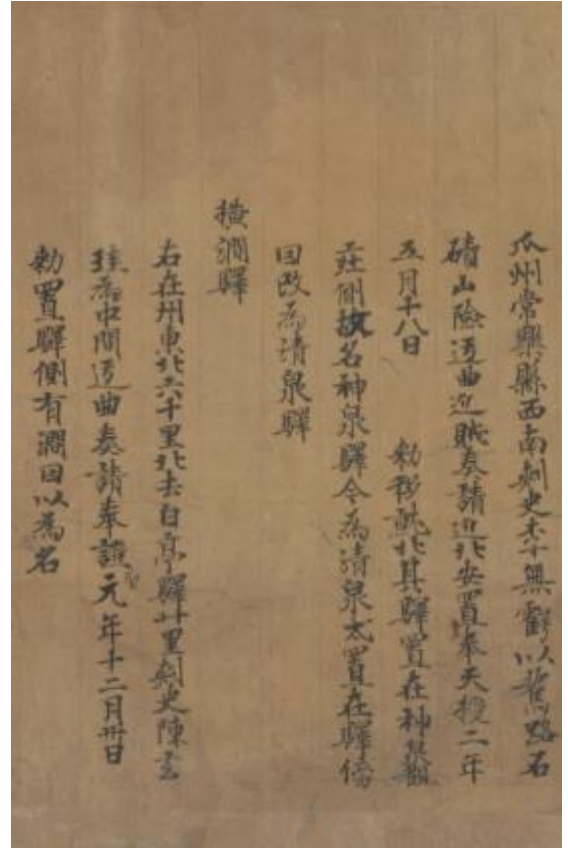 瓜州常樂縣西南刾史李無虧以舊路石
磧山險迂曲近賊奏請近北安置奉天授二年
五月十八日　勑移就北其驛置在神泉觀
莊側故名神泉驛今為清泉戍置在驛傍
因改為清泉驛
橫澗驛
右在州東北六十里北去白亭驛廿里刾史陳玄
珪為中間迂曲奏請奉證元年十二月卅日
勑置驛側有澗因以為名